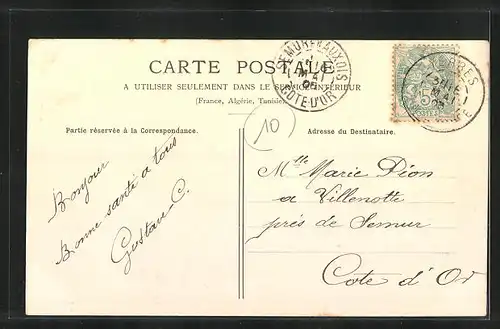 CARTE POSTALE
A UTILISER SEULEMENT DANS LE SERVICE INTÉRIEUR
(France, Algérie, Tunisie)
SEMUR-EN-AUXOIS
MAI
05
COTE-D'OR
5
MAI
10
Partie réservée à la Correspondance.
Adresse du Destinataire.
Bonjour
Bonne santé a tous
Gustave C.
Mlle Marie Dion
a Villenotte
près de Semur
Cote d'Or